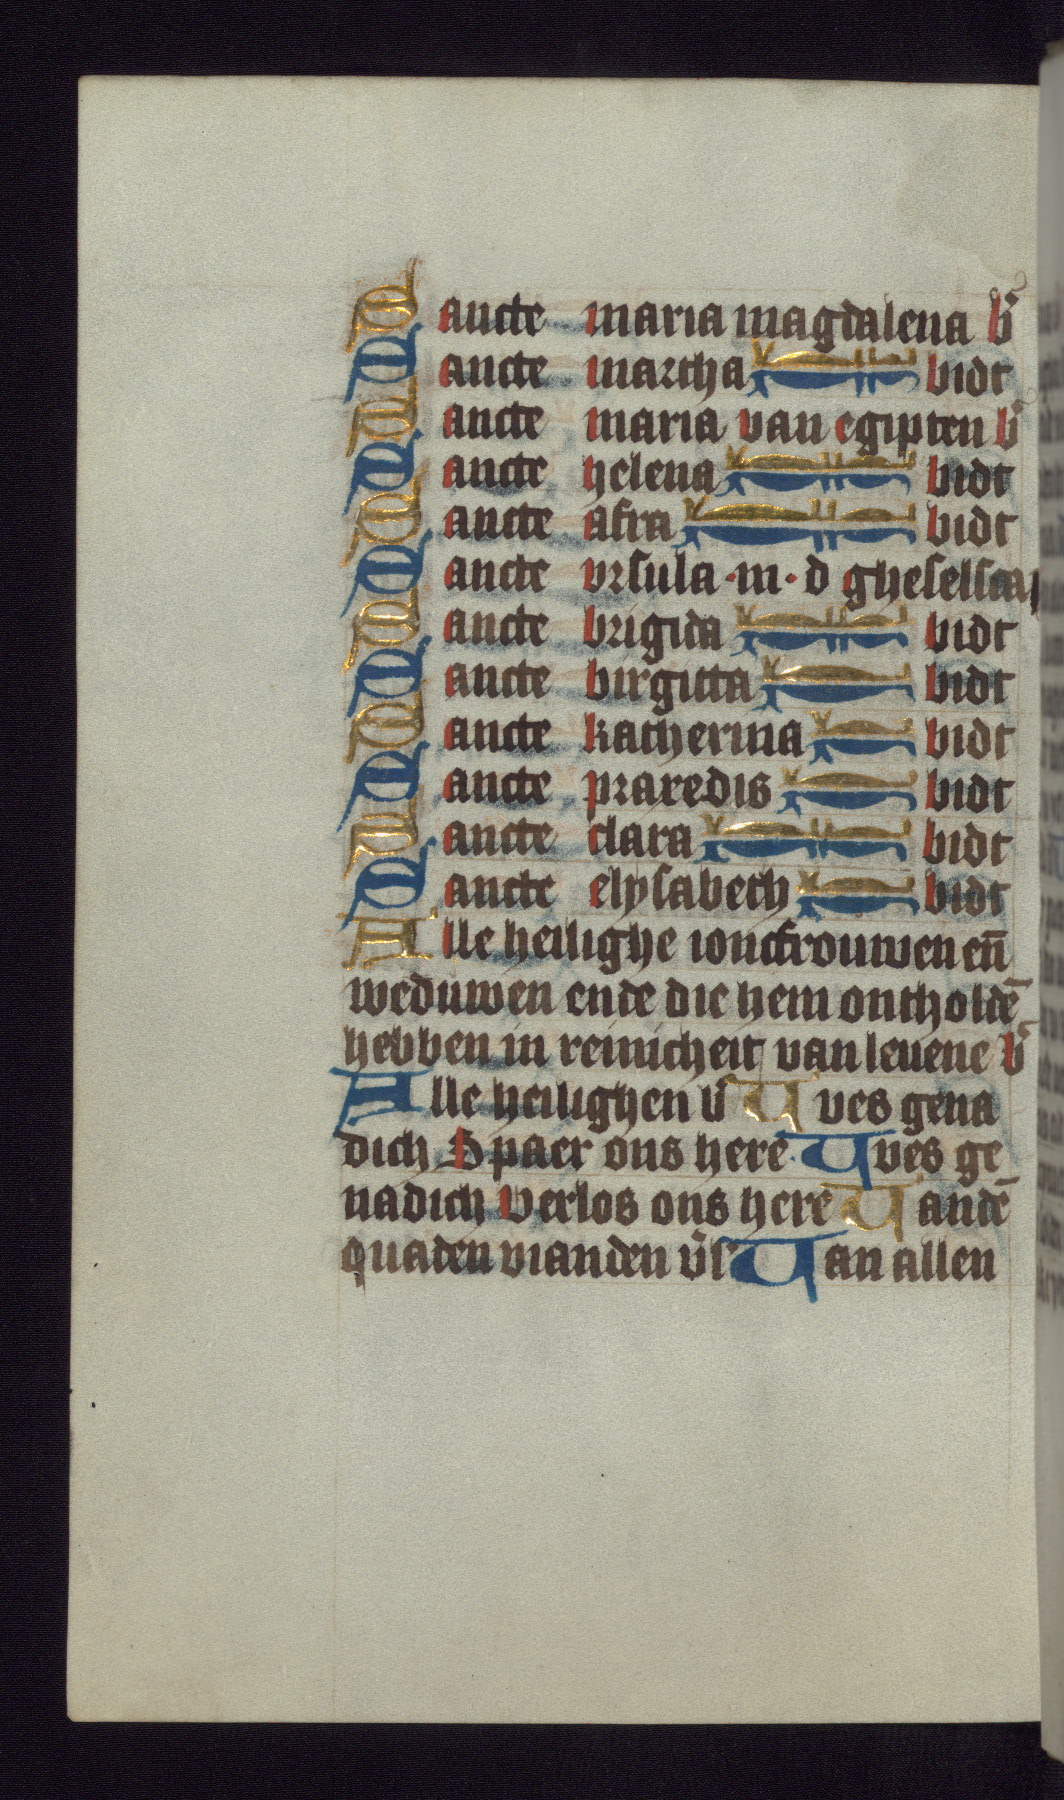 Sancte maria magdalena b̄
Sancte martha bidt
Sancte maria van egipten b̄
Sancte helena bidt
Sancte afra bidt
Sancte vrsula · m · d gheselscap
Sancte brigida bidt
Sancte birgitta bidt
Sancte katherina bidt
Sancte praxedis bidt
Sancte clara bidt
Sancte elysabeth bidt
Alle heilighe ioncfrouwen en̄
weduwen ende die hem ontholdē
hebben in reinicheit van leuene b̄
Alle heilighen b̄ Wes gena
dich Spaer ons here Wes ge
nadich Verlos ons here Van dē
quaden vianden v̄l Van allen